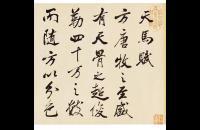 天馬賦
方唐牧之至盛
有天骨之超俊
勒四十万之數
而隨方以分色